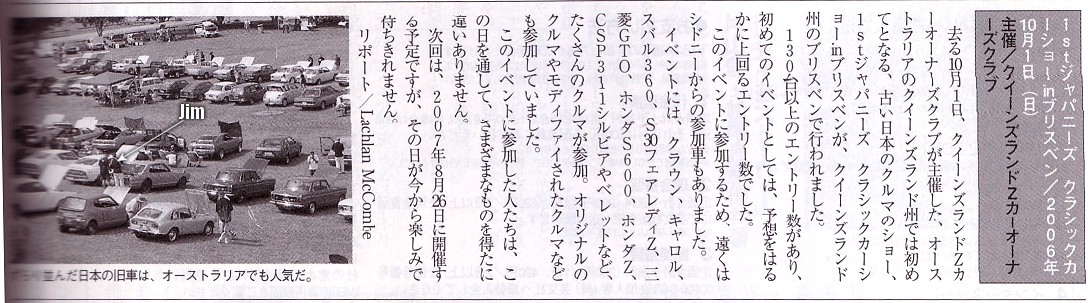 1stジャパニーズ クラシックカ
ーショーinブリスベン/2006年
10月1日(日)
主催/クイーンズランドZカーオーナ
ーズクラブ
去る10月1日、クイーンズランドZカ
ーオーナーズクラブが主催した、オース
トラリアのクイーンズランド州では初め
てとなる、古い日本のクルマのショー、
1stジャパニーズ クラシックカーシ
ョーinブリスベンが、クイーンズランド
州のブリスベンで行われました。
130台以上のエントリー数があり、
初めてのイベントとしては、予想をはる
かに上回るエントリー数でした。
このイベントに参加するため、遠くは
シドニーからの参加車もありました。
イベントには、クラウン、キャロル、
スバル360、S30フェアレディZ、三
菱GTO、ホンダS600、ホンダZ、
CSP311シルビアやベレットなど、
たくさんのクルマが参加。オリジナルの
クルマやモディファイされたクルマなど
も参加していました。
このイベントに参加した人たちは、こ
の日を通して、さまざまなものを得たに
違いありません。
次回は、2007年8月26日に開催す
る予定ですが、その日が今から楽しみで
待ちきれません。
リポート/Lachlan McCombe
Jim
り並んだ日本の旧車は、オーストラリアでも人気だ。